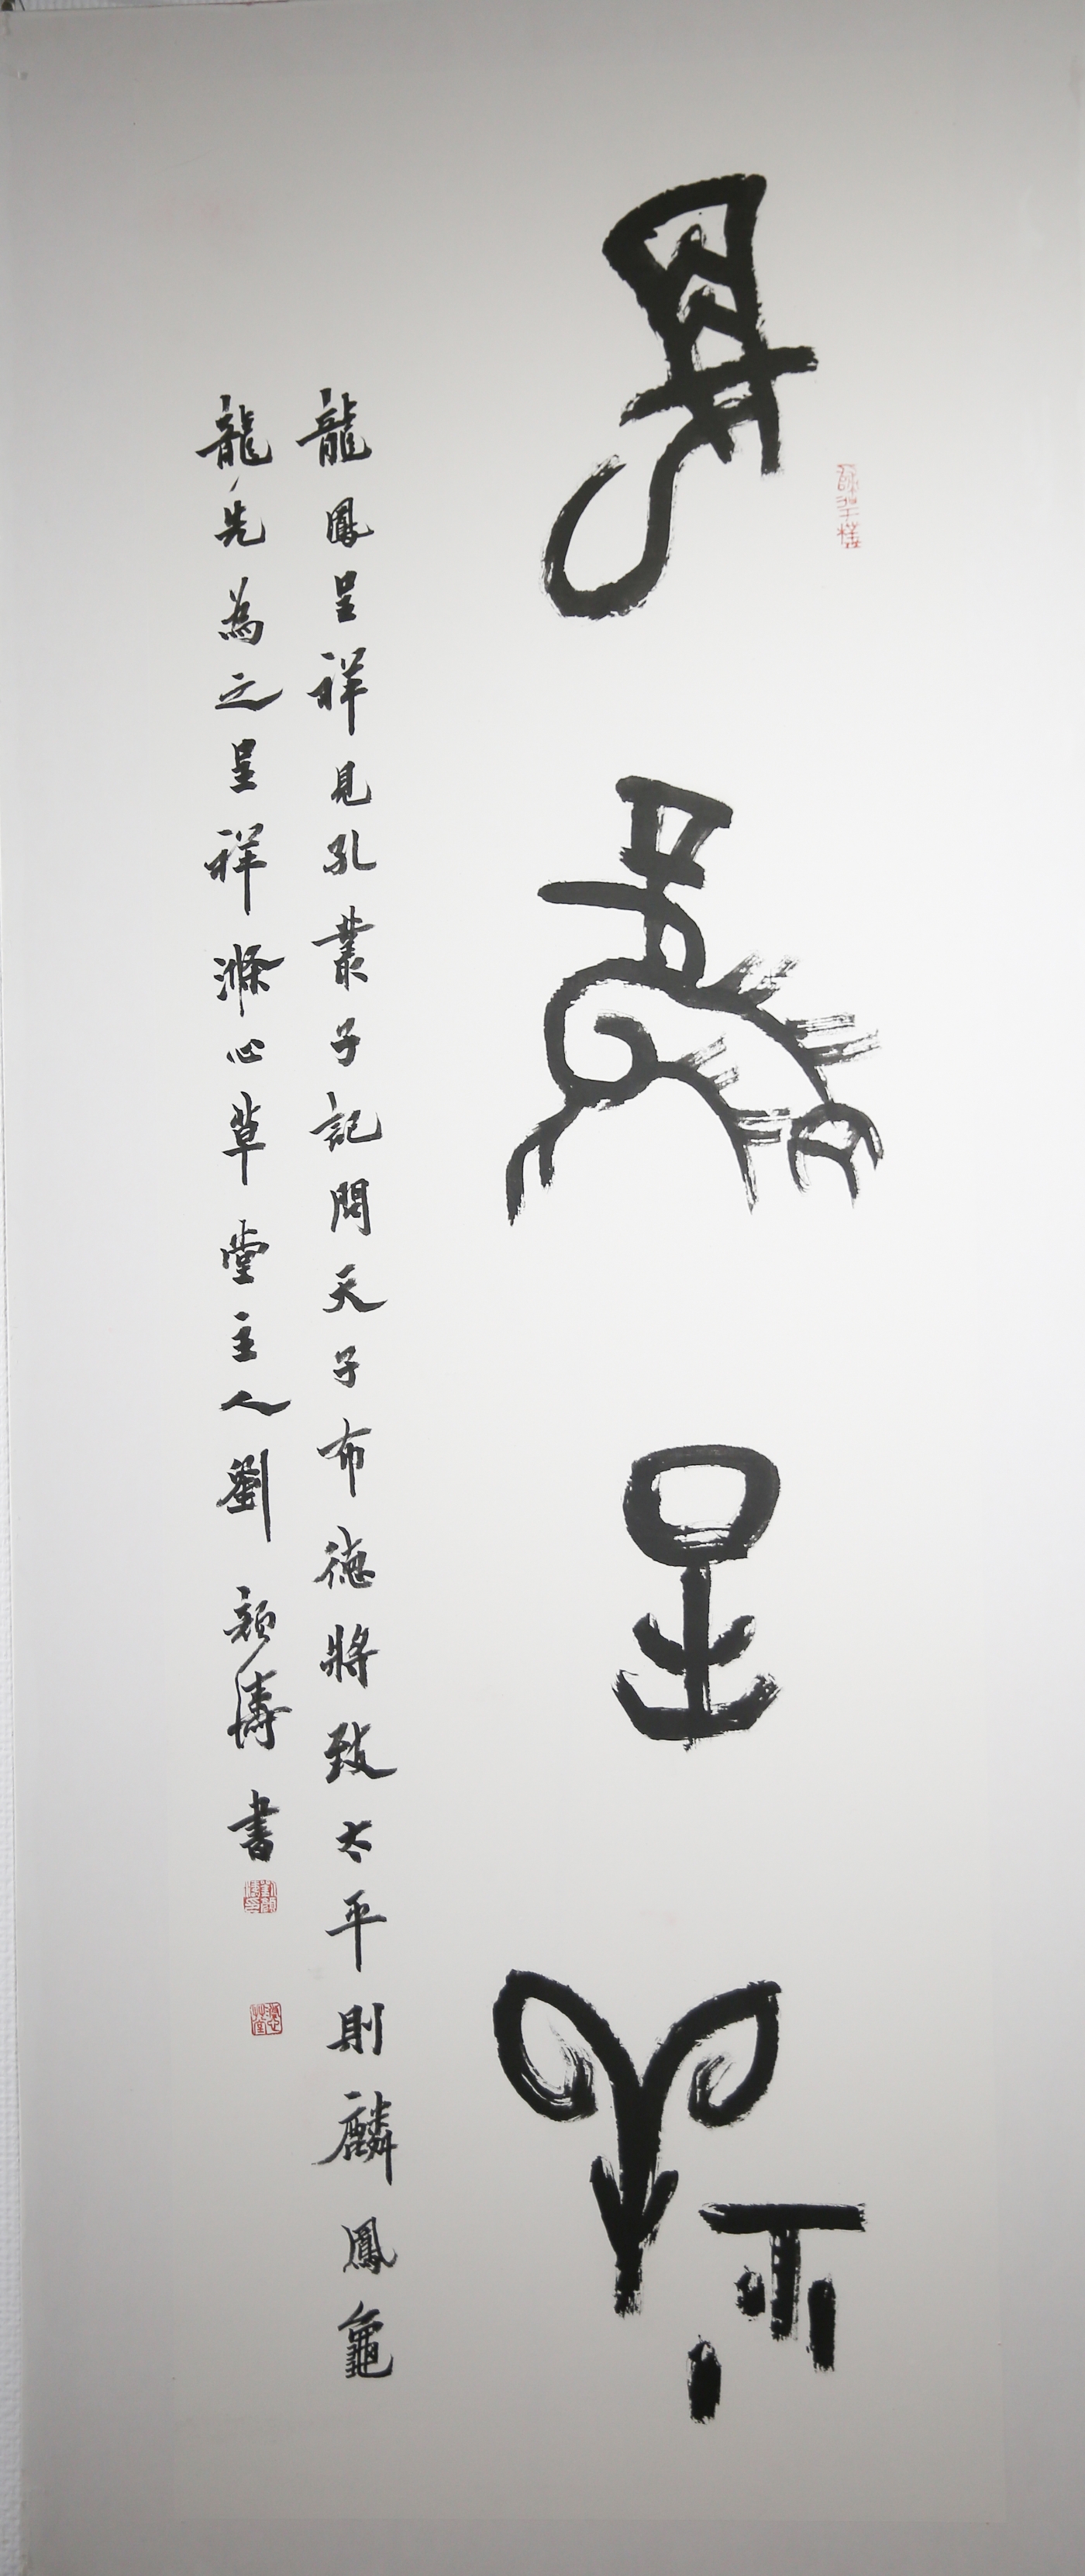 龍鳳呈祥
龍鳳呈祥見孔叢子記問天子布德將致太平則麟鳳龜
龍先為之呈祥滌心草堂主人劉顏濤書